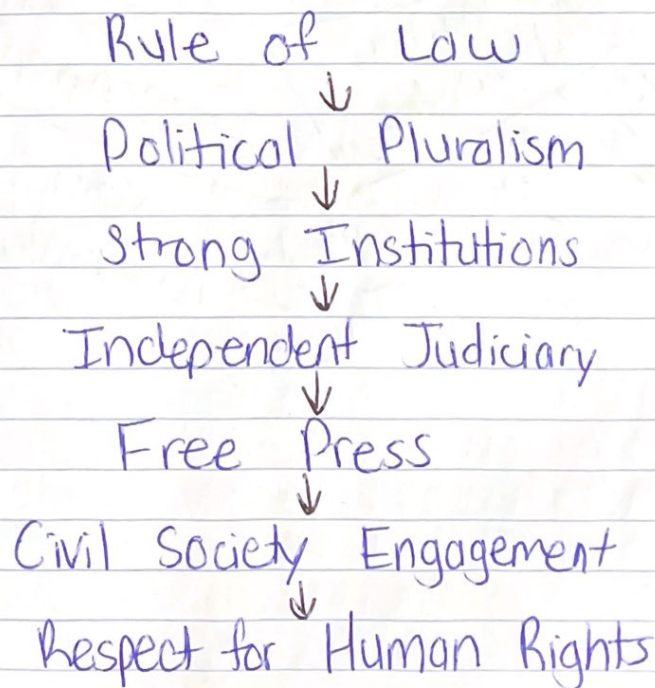 Rule of Law
↓
Political Pluralism
↓
Strong Institutions
↓
Independent Judiciary
↓
Free Press
↓
Civil Society Engagement
↓
Respect for Human Rights